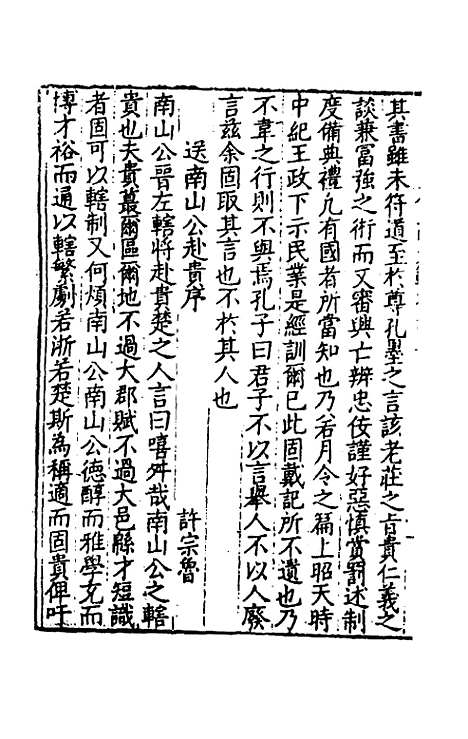 其書雖未符道至於尊孔墨之言該老莊之旨貴仁義之
談兼冨強之術而又審興亡辨忠佞謹好惡慎賞罰述制
度備典禮凡有國者所當知也乃若月令之篇上昭天時
中紀王政下示民業是經訓爾已此固戴記所不遺也乃
不韋之行則不與焉孔子曰君子不以言舉人不以人廢
言兹余固取其言也不於其人也
送南山公赴貴序
許宗魯
南山公晉左轄將赴貴楚之人言曰嘻舛哉南山公之轄
貴也夫貴蕞爾區爾地不過大郡賦不過大邑縣才短識
者固可以轄制又何煩南山公南山公德醇而雅學充而
博才裕而通以轄繁劇若浙若楚斯為稱適而固貴俾吁